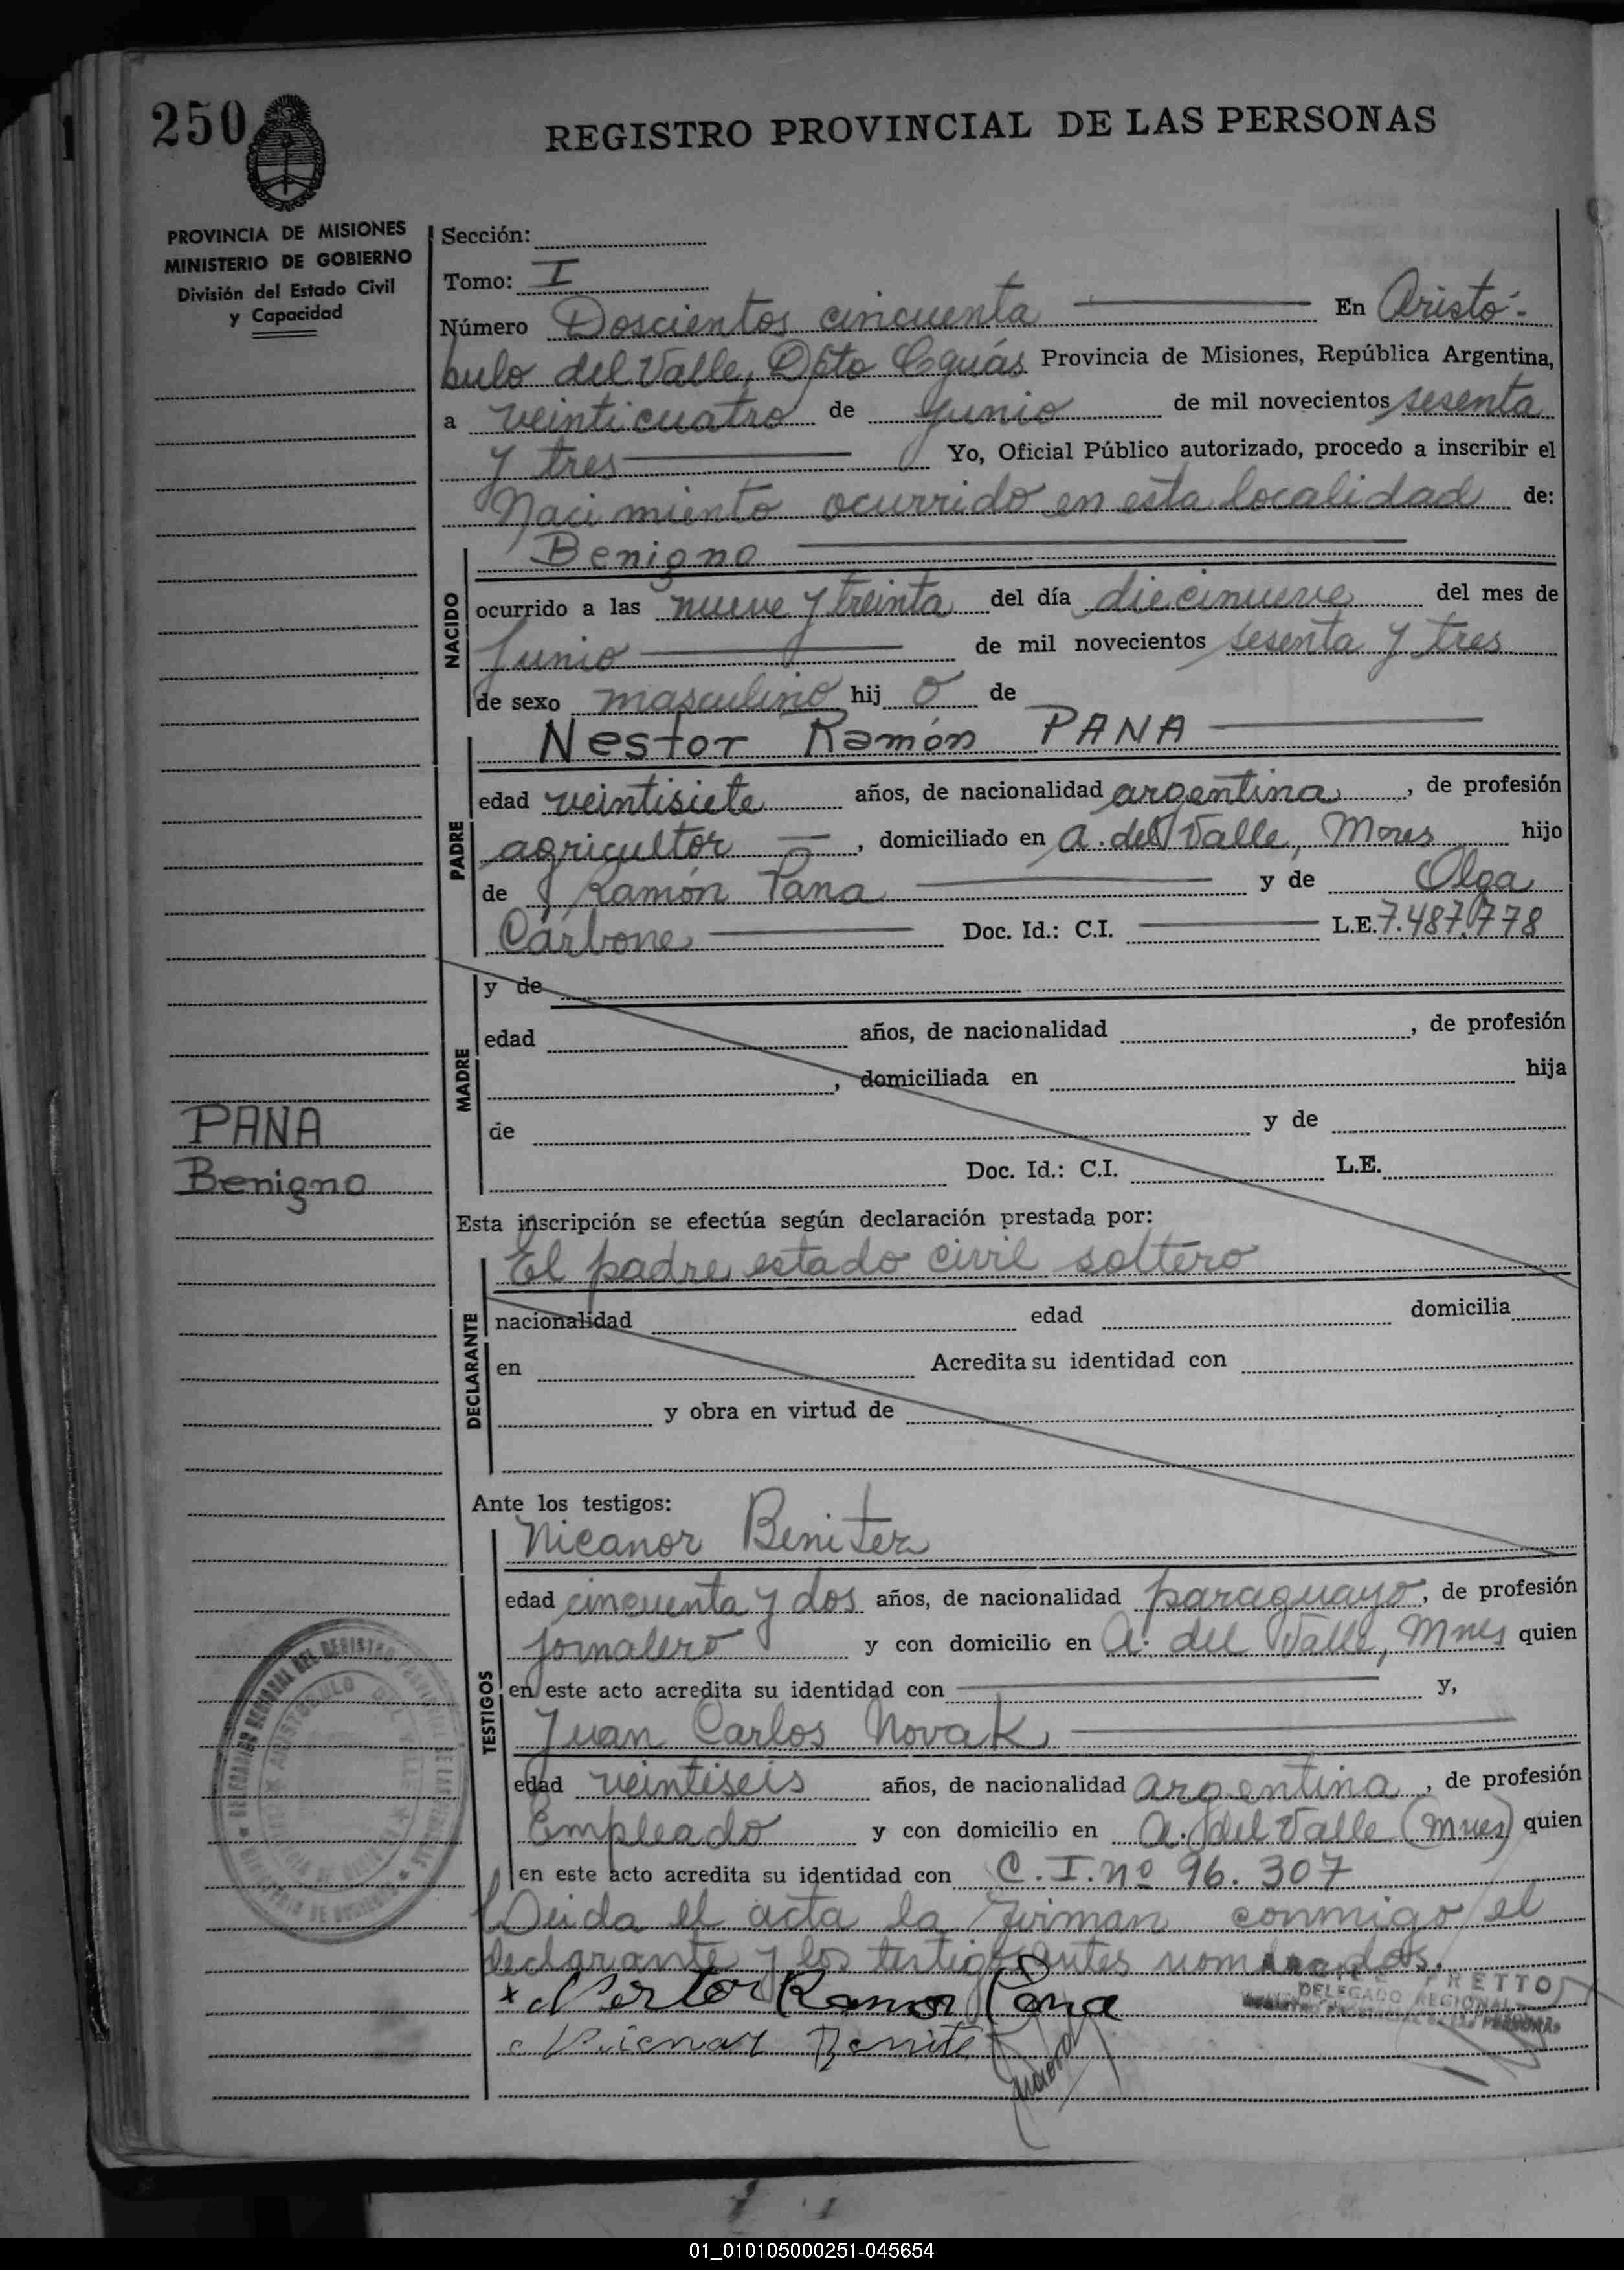 250
REGISTRO PROVINCIAL DE LAS PERSONAS
PROVINCIA DE MISIONES
MINISTERIO DE GOBIERNO
División del Estado Civil
y Capacidad
Sección:
Tomo: I
Número Doscientos cincuenta En Aristó-
bulo del Valle, Dpto Cguás Provincia de Misiones, República Argentina,
a veinticuatro de Junio de mil novecientos sesenta
y tres Yo, Oficial Público autorizado, procedo a inscribir el
Nacimiento ocurrido en esta localidad de:
NACIDO
Benigno
ocurrido a las nueve y treinta del día diecinueve del mes de
Junio de mil novecientos sesenta y tres
de sexo masculino hij o de
PADRE
Nestor Ramón PANA
edad veintisiete años, de nacionalidad argentina, de profesión
agricultor, domiciliado en A. del Valle, Mnes hijo
de Ramón Pana y de Olga
Carbone Doc. Id.: C.I. L.E. 7.487.778
MADRE
y de
edad años, de nacionalidad , de profesión
, domiciliada en hija
de y de
Doc. Id.: C.I. L.E.
PANA
Benigno
Esta inscripción se efectúa según declaración prestada por:
DECLARANTE
El padre estado civil soltero
nacionalidad edad domicilia
en Acredita su identidad con
y obra en virtud de
Ante los testigos:
TESTIGOS
Nicanor Benitez
edad cincuenta y dos años, de nacionalidad paraguayo, de profesión
jornalero y con domicilio en A. del Valle, Mnes quien
en este acto acredita su identidad con y,
Juan Carlos Novak
edad veintiseis años, de nacionalidad argentina, de profesión
Empleado y con domicilio en A. del Valle (Mnes) quien
en este acto acredita su identidad con C.I. nº 96.307
Leida el acta la firman conmigo el
declarante y los testigos antes nombrados.
x Nestor Ramon Pana
PRETTO
DELEGADO REGIONAL
01_010105000251-045654